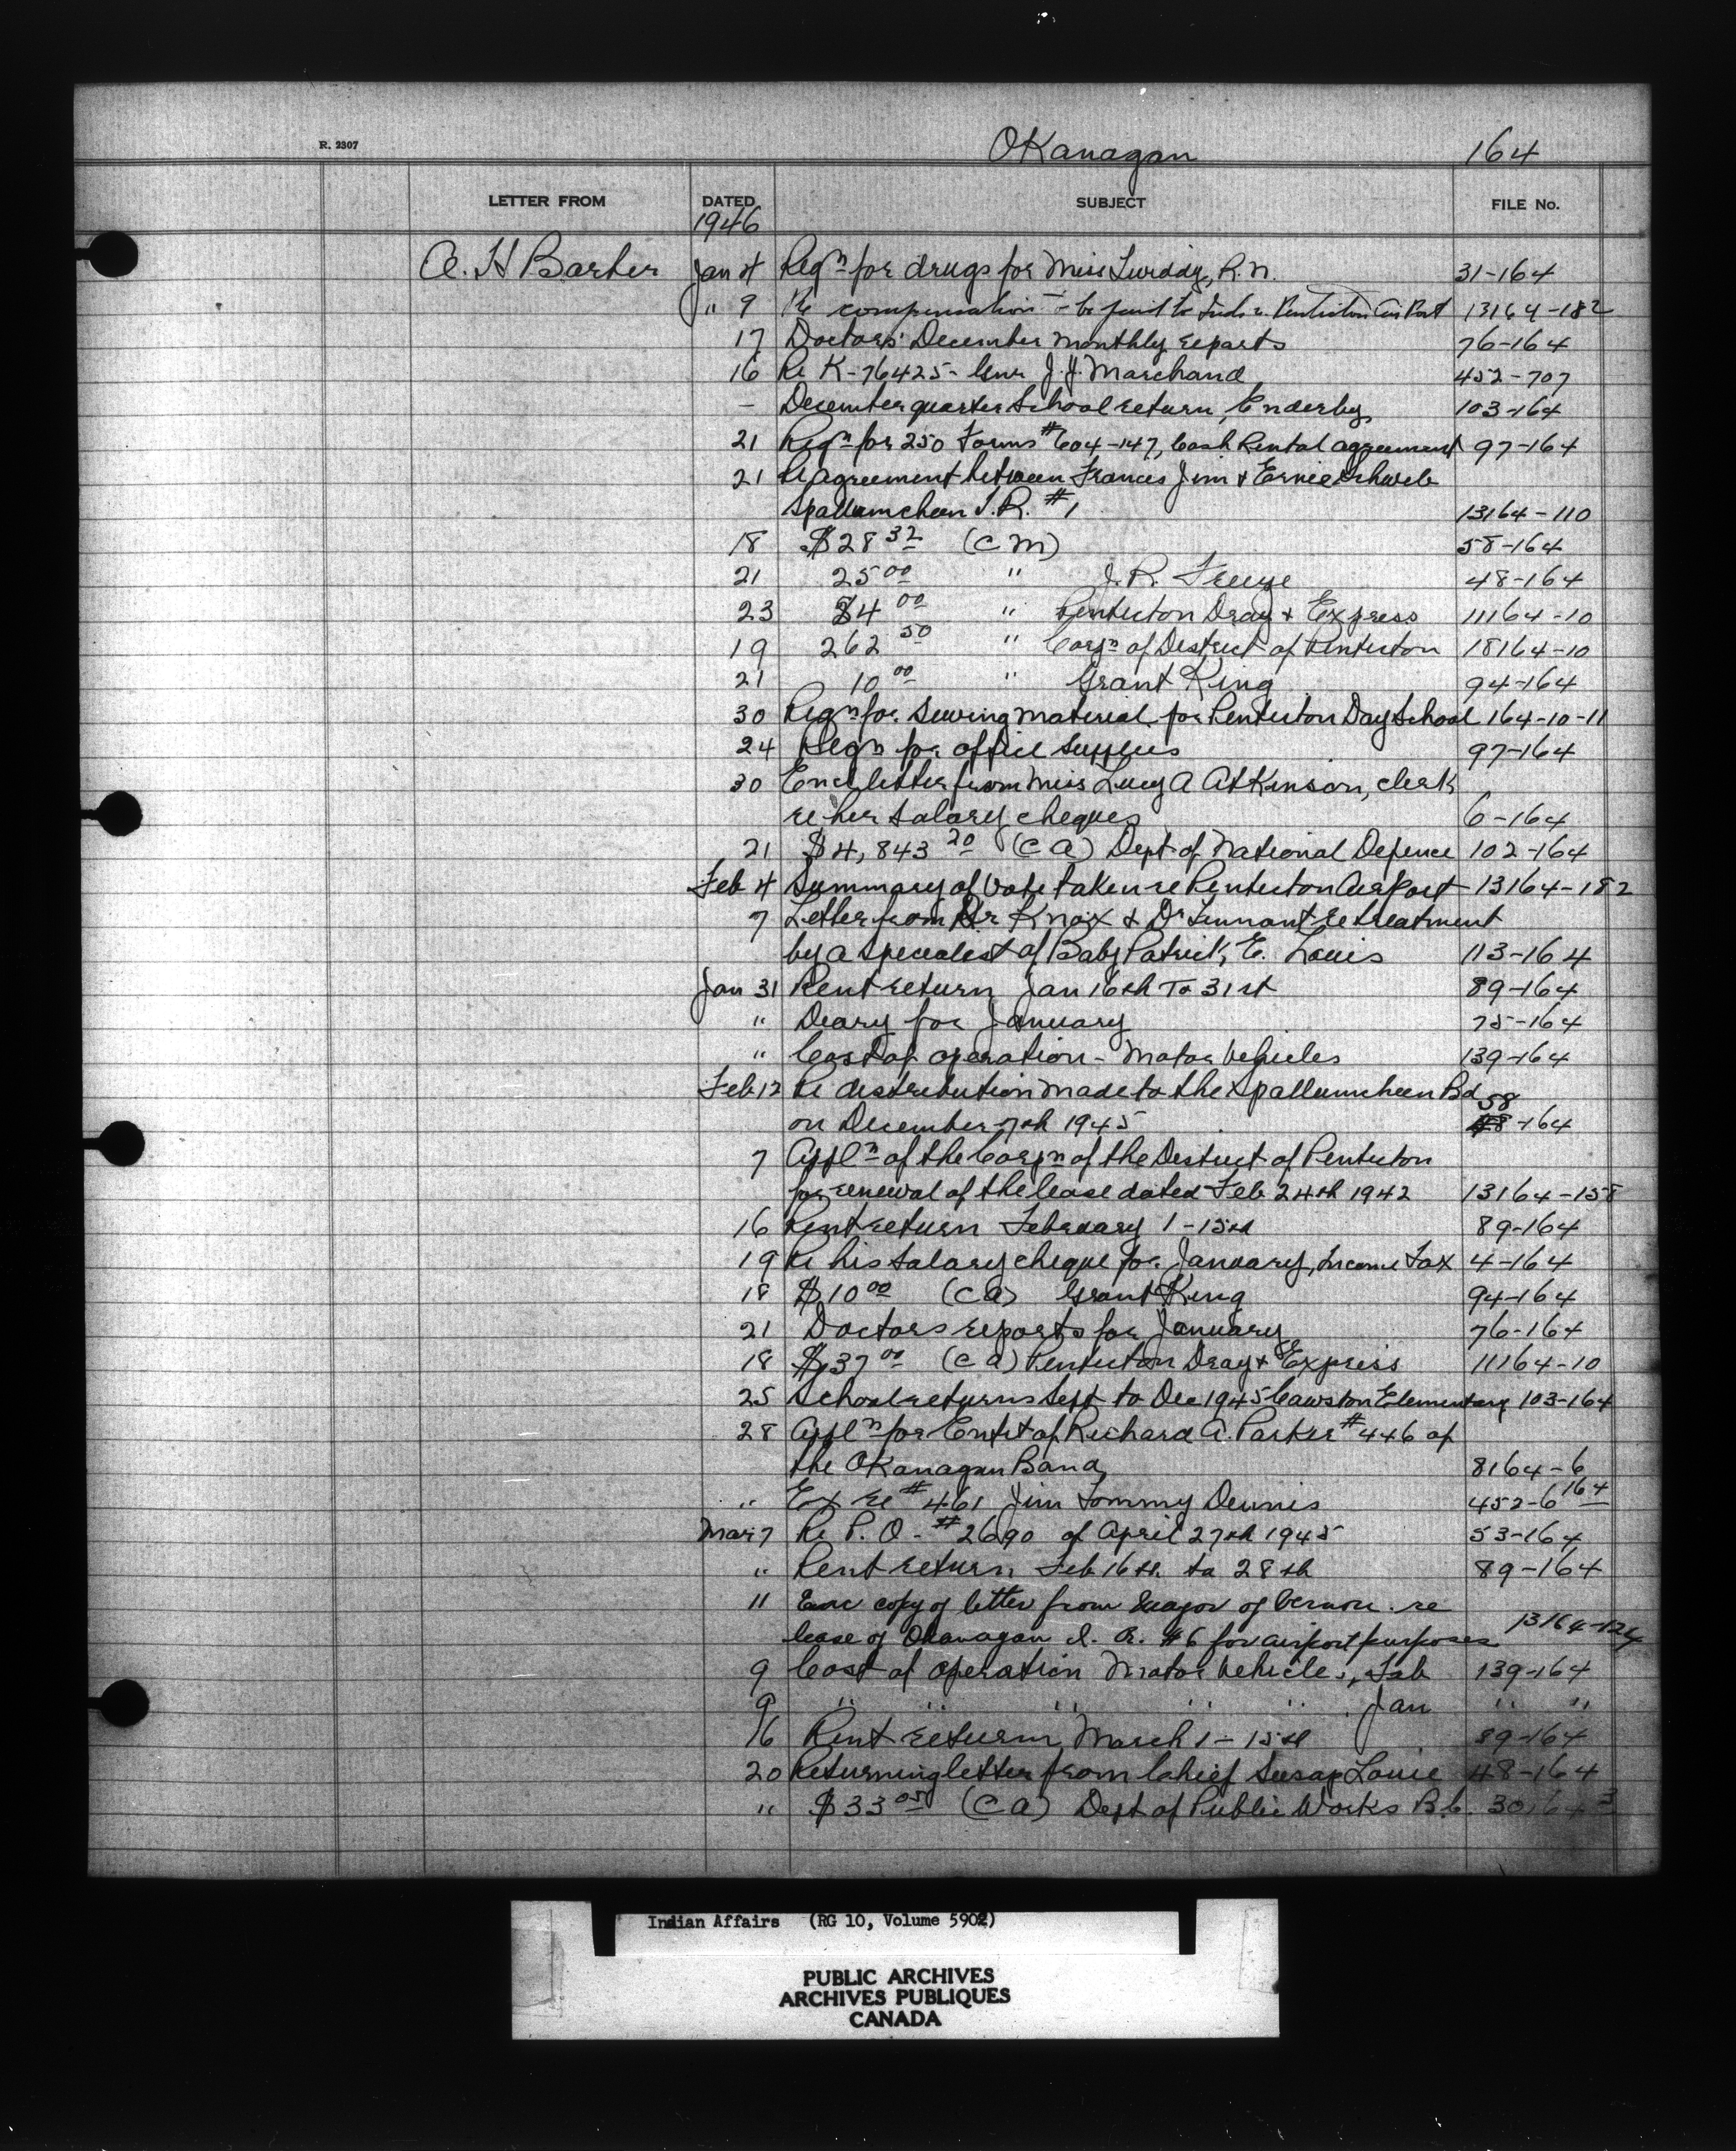 R. 2307
OKanagan 164
LETTER FROM DATED SUBJECT FILE No.
1946
A. H Barber Jan 4 Reqn for drugs for Miss R.N. 31-164
" 9 Re compensation to be paid to Inds re Penticton Air Port 13164-182
17 Doctors' December monthly reports 76-164
16 Re K-76425- Gnr J.J. Marchand 452-707
- December quarter School return, Enderby 103-164
21 Reqn for 250 Forms #604-147, Cash Rental agreement 97-164
21 Re agreement between Frances Jim & Ernie Schweb
Spallumcheen I.R. #1 13164-110
18 $28 32 (C M) 58-164
21 25 00 " J. R. 48-164
23 $4 00 " Penticton Dray & Express 11164-10
19 262 50 " Corpn of District of Penticton 18164-10
21 10 00 " Grant King 94-164
30 Reqn for Sewing material for Penticton Day School 164-10-11
24 Reqn for office supplies 97-164
30 Encl letter from Miss Lucy A Atkinson, clerk
re her salary cheques 6-164
21 $4,843 20 (C A) Dept of National Defence 102-164
Feb 4 Summary of vote taken re Penticton Airport 13164-182
7 Letter from Dr Knox & Dr Tennant re treatment
by a specialist of Baby Patrick E. Louis 113-164
Jan 31 Rent return Jan 16th To 31st 89-164
" Diary for January 75-164
" Cost of operation - Motor Vehicles 139-164
Feb 12 Re distribution made to the Spallumcheen Bd 58
on December 7th 1945 -164
7 Appln of the Corpn of the District of Penticton
for renewal of the lease dated Feb 24th 1942 13164-158
16 Rent return February 1-15th 89-164
19 Re his salary cheque for January, Income Tax 4-164
18 $10 00 (C A) Grant King 94-164
21 Doctors reports for January 76-164
18 $37 00 (C A) Penticton Dray & Express 11164-10
25 School returns Sept to Dec 1945 Cawston Elementary 103-164
28 Appln for Enft of Richard A. Parker #446 of
the OKanagan Band 8164-6
" Ex re #461 Jim Tommy Dennis 452-6 164
Mar 7 Re P. O. - #2690 of April 27th 1945 53-164
" Rent return Feb 16th to 28th 89-164
11 Enc copy of letter from Mayor of Vernon re
lease of Okanagan I. R. #6 for airport purposes 13164-124
9 Cost of operation Motor Vehicles, Feb 139-164
9 " " " " " Jan " "
16 Rent return March 1-15th 89-164
20 Returning letter from Chief Susap Louie 48-164
" $33 05 (C A) Dept of Public Works B.C. 30164 3
Indian Affairs (RG 10, Volume 5902)
PUBLIC ARCHIVES
ARCHIVES PUBLIQUES
CANADA